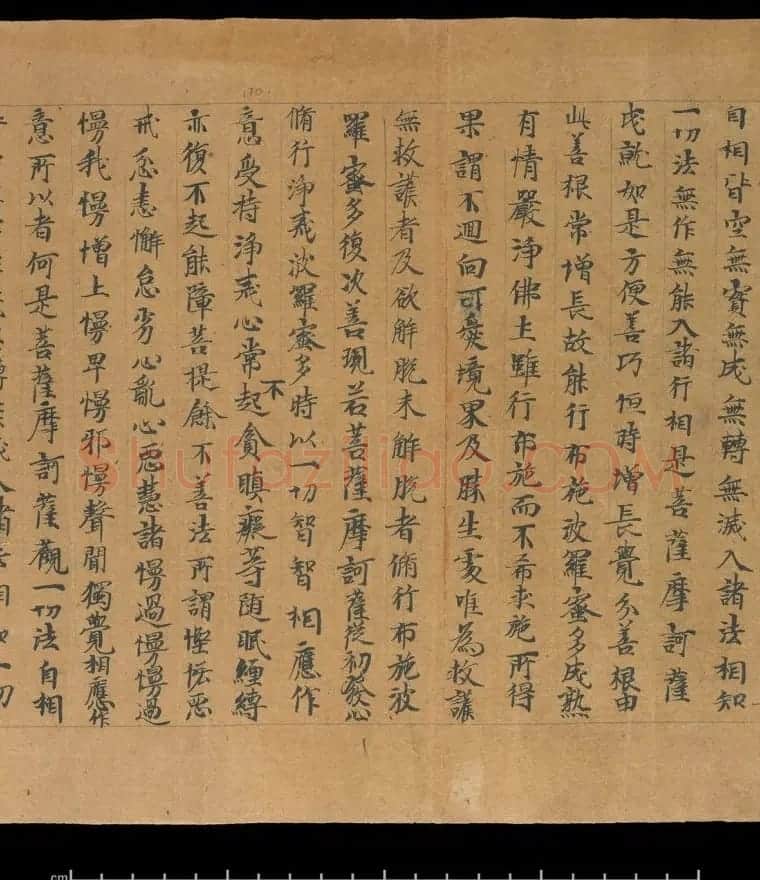 自相皆空無實無成無轉無滅入諸法相知
一切法無作無能入諸行相是菩薩摩訶薩
成就如是方便善巧恒時增長覺分善根由
此善根常增長故能行布施波羅蜜多成熟
有情嚴淨佛土雖行布施而不希求施所得
果謂不迴向可愛境界及勝生處唯為救護
無救護者及欲解脫未解脫者脩行布施波
羅蜜多復次善現若菩薩摩訶薩從初發心
脩行淨戒波羅蜜多時以一切智智相應作
意受持淨戒心常不起貪瞋癡等随眠纏縛
亦復不起能障菩提餘不善法所謂慳悋惡
戒忿恚懈怠劣心亂心惡慧諸慢過慢慢過
慢我慢增上慢卑慢邪慢聲聞獨覺相應作
意所以者何是菩薩摩訶薩觀一切法自相
入諸法相知一切
170
shufaziliao.COM
cm